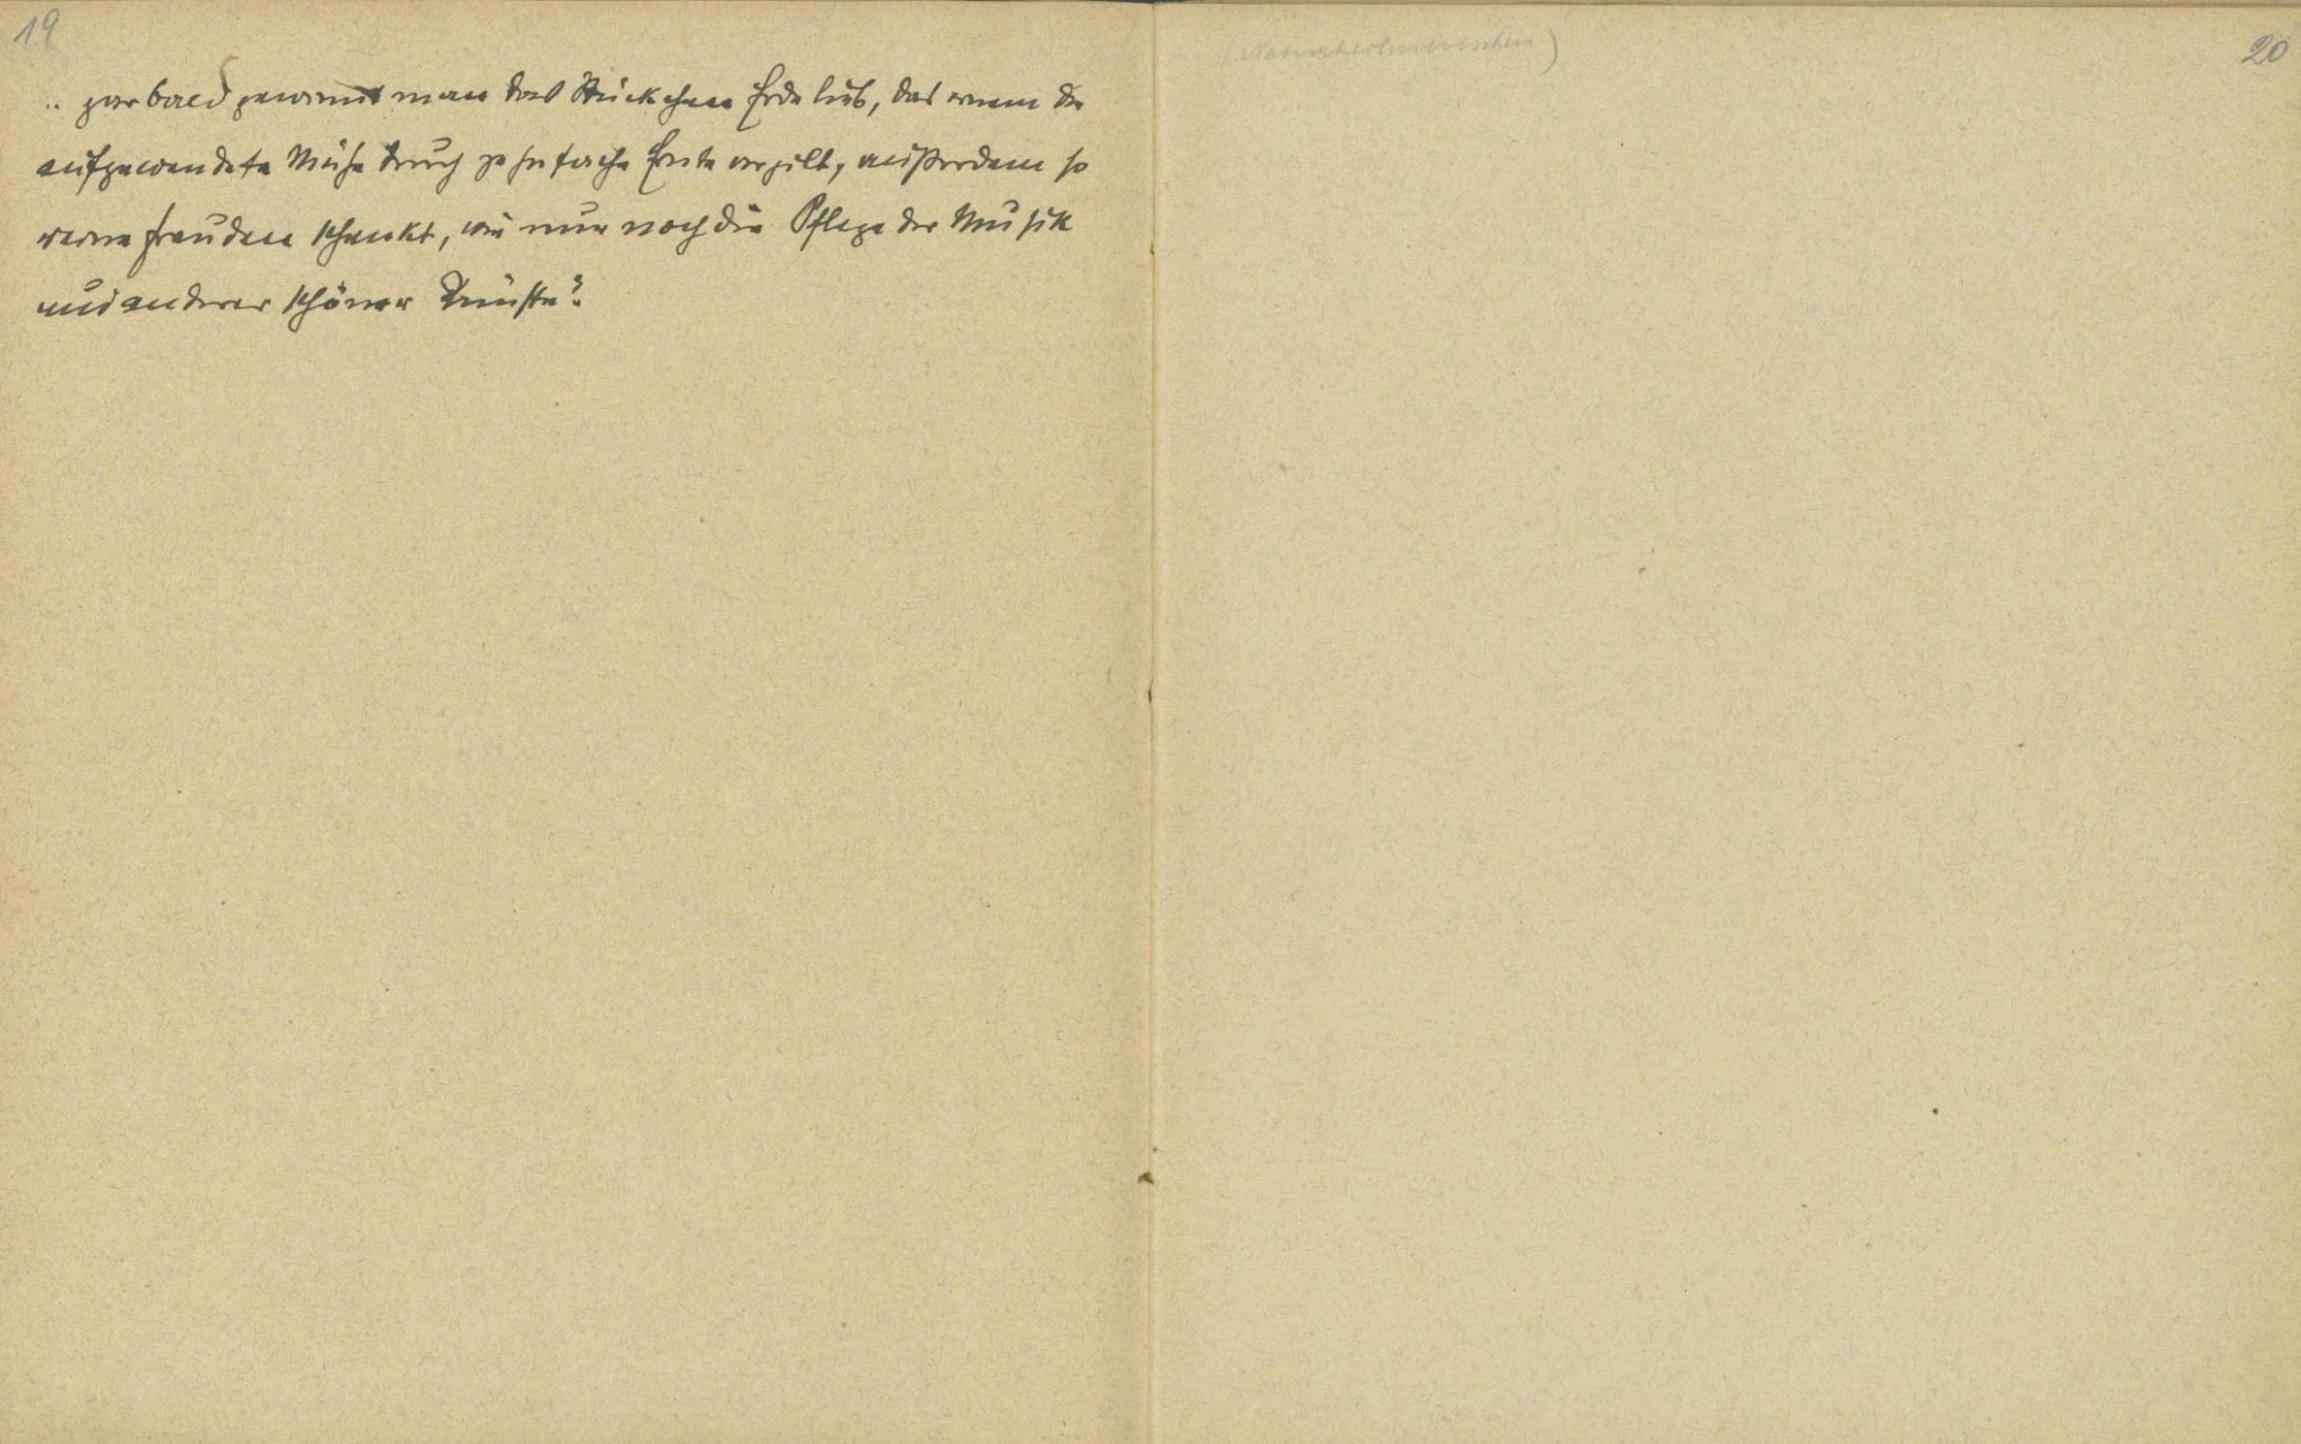 19
.. gar bald gewinnt man das Stückchen Erde lieb, das einem die
aufgewendete Mühe durch zehnfache Ernte vergilt, außerdem so
reine Freuden schenkt, wie nur noch die Pflege der Musik
und anderer schöner Künste".
20